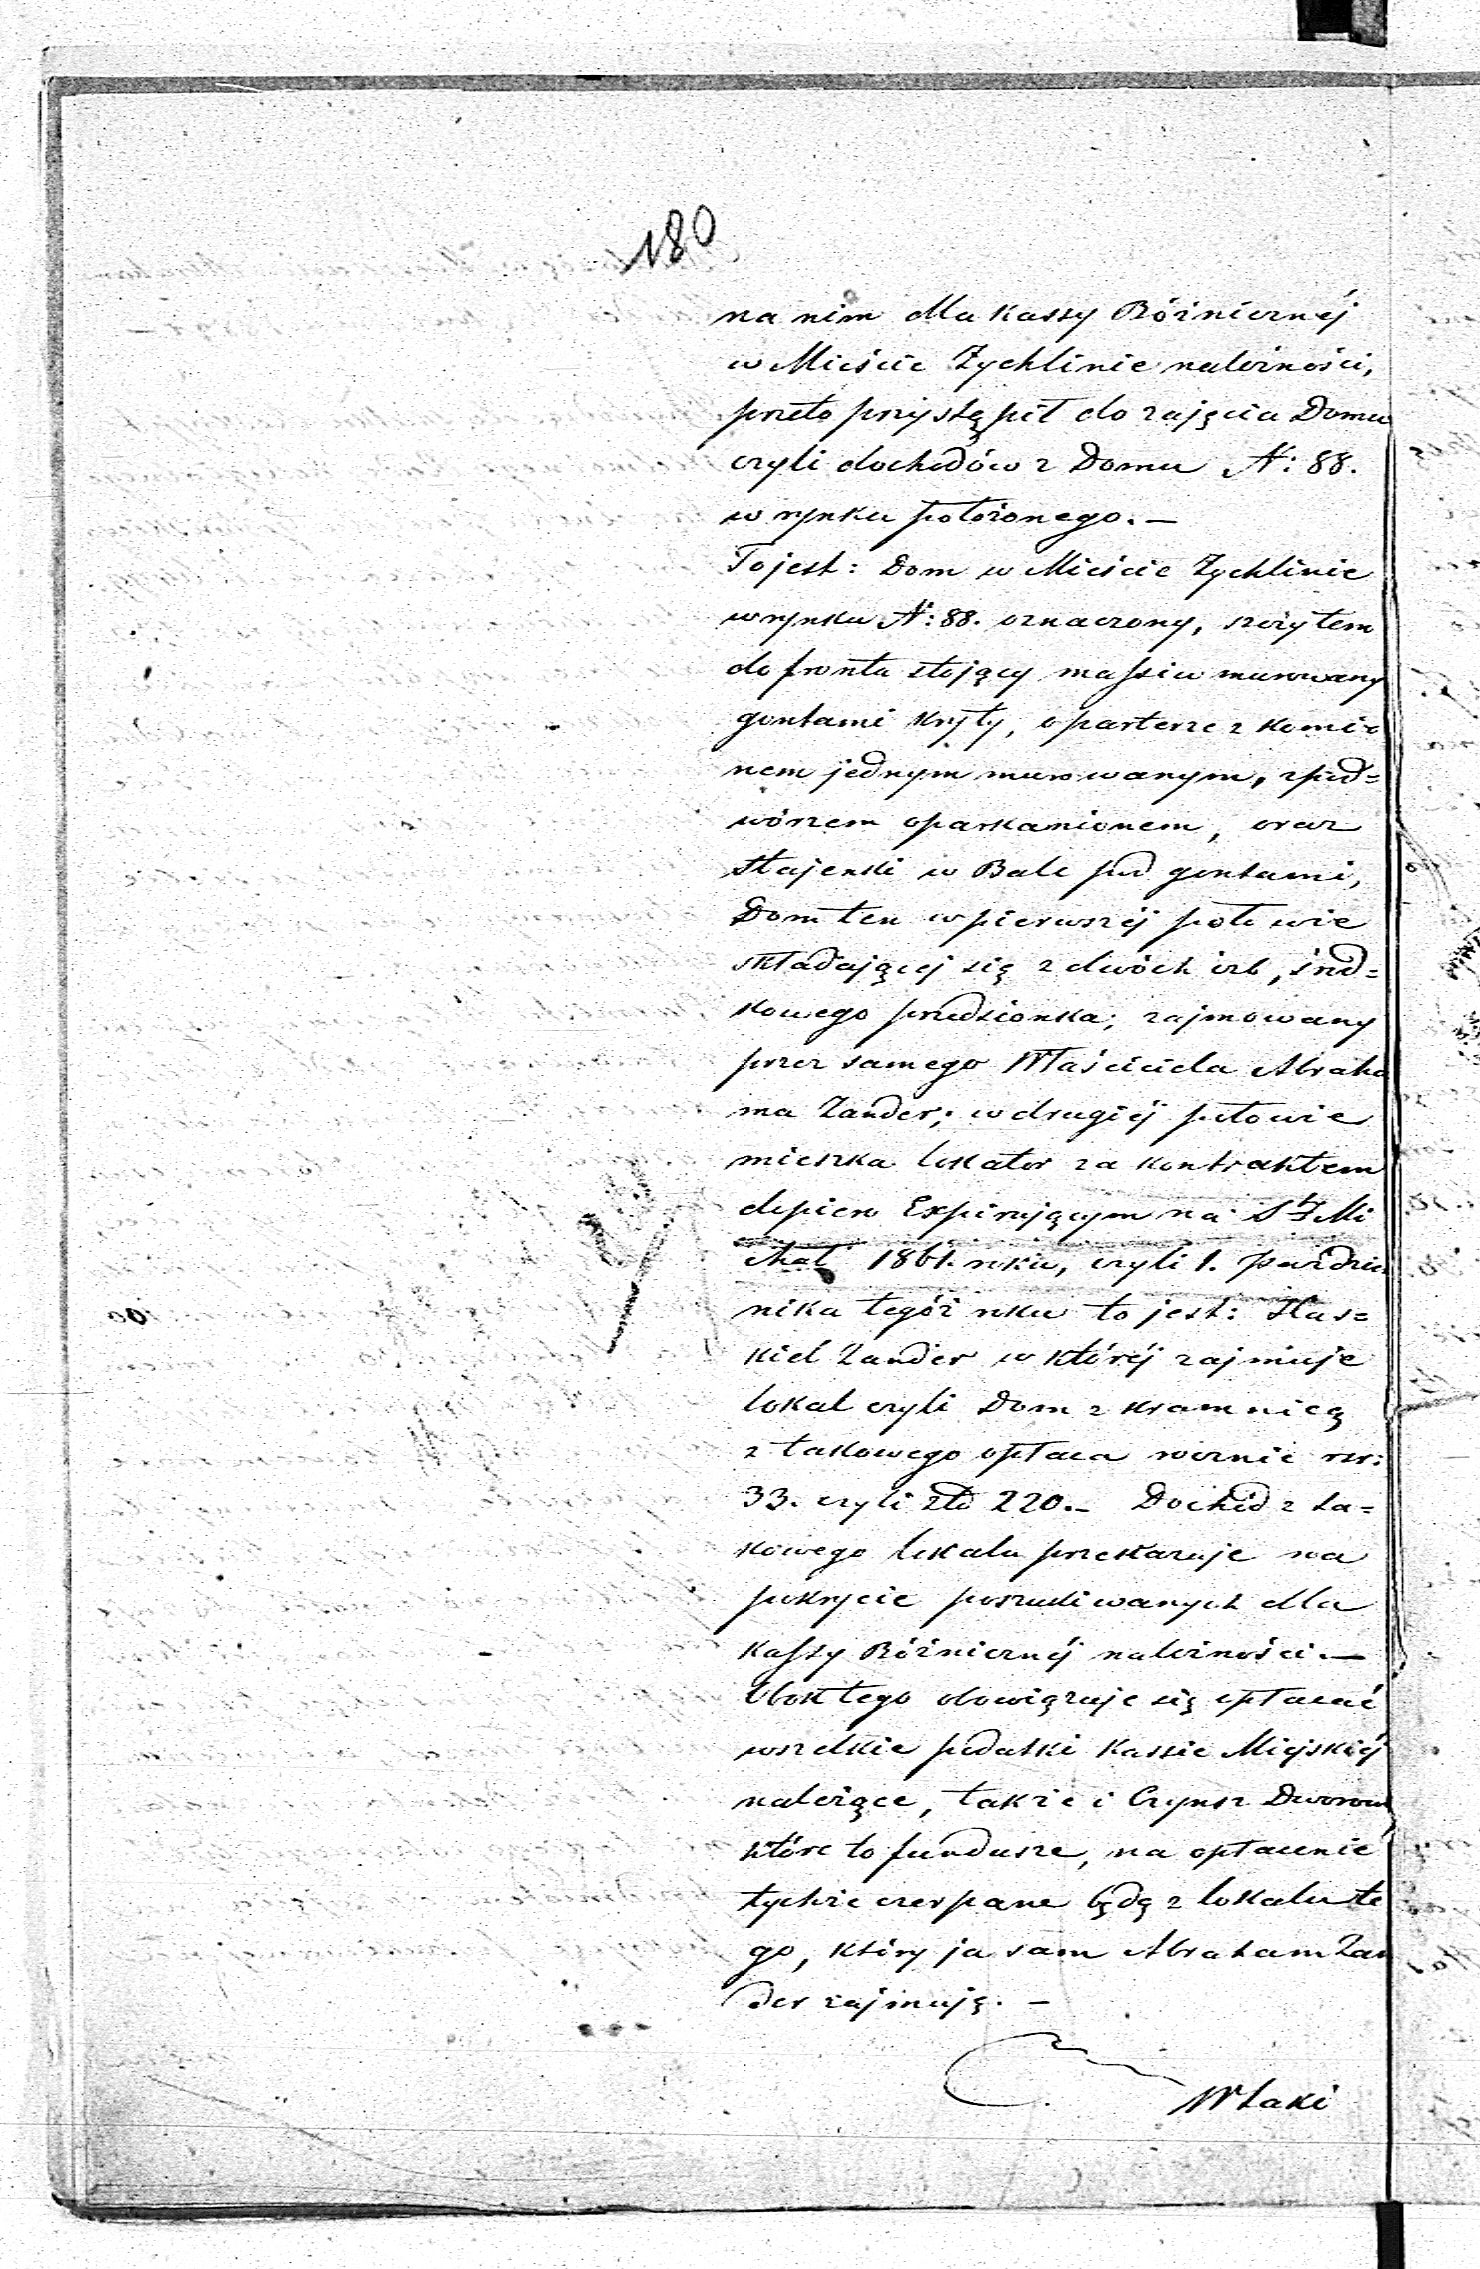 180
na nim dla kassy Bóźnicznéj
w Mieście Żychlinie należności,
przeto przystąpił do zajęcia Domu
czyli dochodów z Domu N: 88.
w rynku położonego. —
To jest: Dom w Mieście Żychlinie
w rynku N: 88. oznaczony, szczytem
do frontu stojący massiw murowany
gontami kryty, o parterze z komi-
nem jednym murowanym, z pod=
wórzem oparkanionem, oraz
stajenki w Bale pod gontami,
Dom ten w pierwszéj połowie
składającej się z dwóch izb, środ=
kowego przedsionka; zajmowany
przez samego Właściciela Abraha
ma Zander; w drugiéj połowie
mieszka lokator za kontraktem
dopiero Expirującym na St Mi
chał 1861. roku, czyli 1. paździer
nika tegóż roku to jest: Has=
kiel Zander w któréj zajmuje
lokal czyli Dom z kramnicą
z takowego opłaca rocznie rsr:
33. czyli złp 220. — Dochód z ta=
kowego lokalu przekazuje na
pokrycie poszukiwanych dla
kassy Bóźnicznéj należności. —
Obok tego obowiązuje się opłacać
wszelkie podatki Kassie Miejskiéj
należące, także i Czynsz Dworowi
które to fundusze, na opłacenie
tychże czerpane będą z lokalu te
go, który ja sam Abraham Zan
der zajmuję. —
W taki